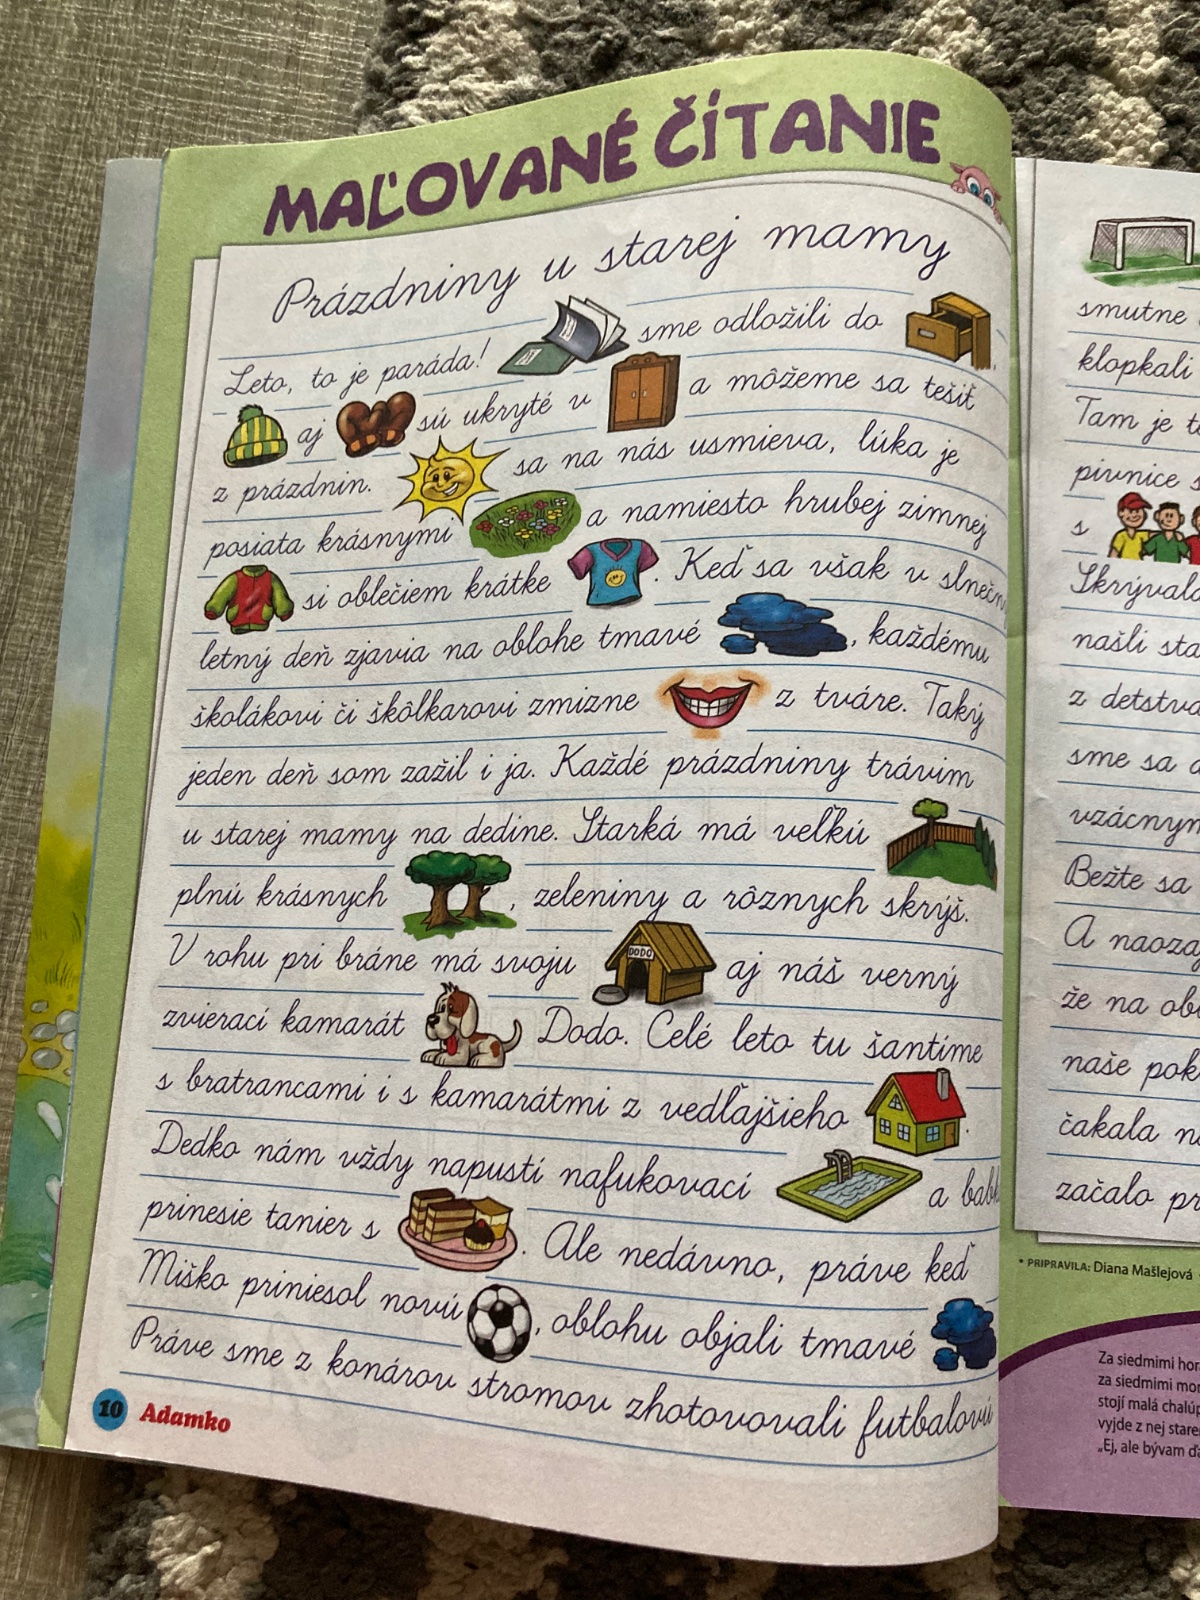 MAĽOVANÉ ČÍTANIE
Prázdniny u starej mamy
Leto, to je paráda! sme odložili do
aj sú ukryté v a môžeme sa tešiť
z prázdnin. sa na nás usmieva, lúka je
posiata krásnymi a namiesto hrubej zimnej
si oblečiem krátke . Keď sa však v
letný deň zjavia na oblohe tmavé , každému
školákovi či škôlkarovi zmizne z tváre. Taký
jeden deň som zažil i ja. Každé prázdniny trávim
u starej mamy na dedine. Starká má veľkú
plnú krásnych , zeleniny a rôznych skrýš.
V rohu pri bráne má svoju DODO aj náš verný
zvierací kamarát Dodo. Celé leto tu šantíme
s bratrancami i s kamarátmi z vedľajšieho .
Dedko nám vždy napustí nafukovací a
prinesie tanier s . Ale nedávno, práve keď
Miško priniesol novú , oblohu objali tmavé
Práve sme z konárov stromov zhotovovali futbalovú
10 Adamko
smutne
klopkali
Tam je
pivnice
s
našli
z detstva
sme sa
Bežte sa
A
že na
naše
čakala
začalo
• PRIPRAVILA: Diana Mašlejová
Za siedmimi
za siedmimi
stojí malá
vyjde z nej
„Ej, ale bývam